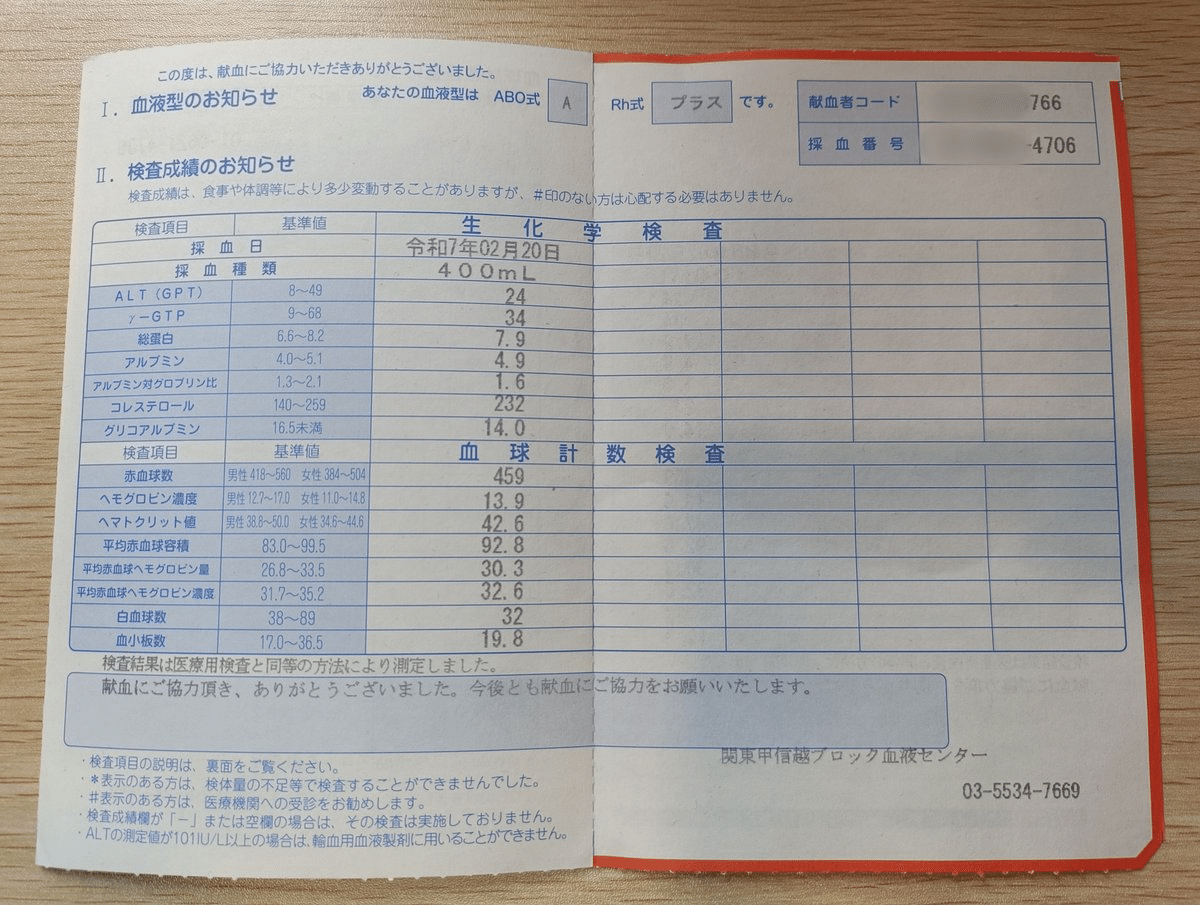 この度は、献血にご協力いただきありがとうございました。
Ⅰ. 血液型のお知らせ あなたの血液型は ABO式 A Rh式 プラス です。
献血者コード 766
採血番号 4706
Ⅱ. 検査成績のお知らせ
検査成績は、食事や体調等により多少変動することがありますが、#印のない方は心配する必要はありません。
検査項目 基準値 生化学検査
採血日 令和7年02月20日
採血種類 400mL
ALT(GPT) 8〜49 24
γ-GTP 9〜68 34
総蛋白 6.6〜8.2 7.9
アルブミン 4.0〜5.1 4.9
アルブミン対グロブリン比 1.3〜2.1 1.6
コレステロール 140〜259 232
グリコアルブミン 16.5未満 14.0
検査項目 基準値 血球計数検査
赤血球数 男性418〜560 女性384〜504 459
ヘモグロビン濃度 男性12.7〜17.0 女性11.0〜14.8 13.9
ヘマトクリット値 男性38.8〜50.0 女性34.6〜44.6 42.6
平均赤血球容積 83.0〜99.5 92.8
平均赤血球ヘモグロビン量 26.8〜33.5 30.3
平均赤血球ヘモグロビン濃度 31.7〜35.2 32.6
白血球数 38〜89 32
血小板数 17.0〜36.5 19.8
検査結果は医療用検査と同等の方法により測定しました。
献血にご協力頂き、ありがとうございました。今後とも献血にご協力をお願いいたします。
関東甲信越ブロック血液センター
03-5534-7669
・検査項目の説明は、裏面をご覧ください。
・*表示のある方は、検体量の不足等で検査することができませんでした。
・#表示のある方は、医療機関への受診をお勧めします。
・検査成績欄が「-」または空欄の場合は、その検査は実施しておりません。
・ALTの測定値が101IU/L以上の場合は、輸血用血液製剤に用いることができません。